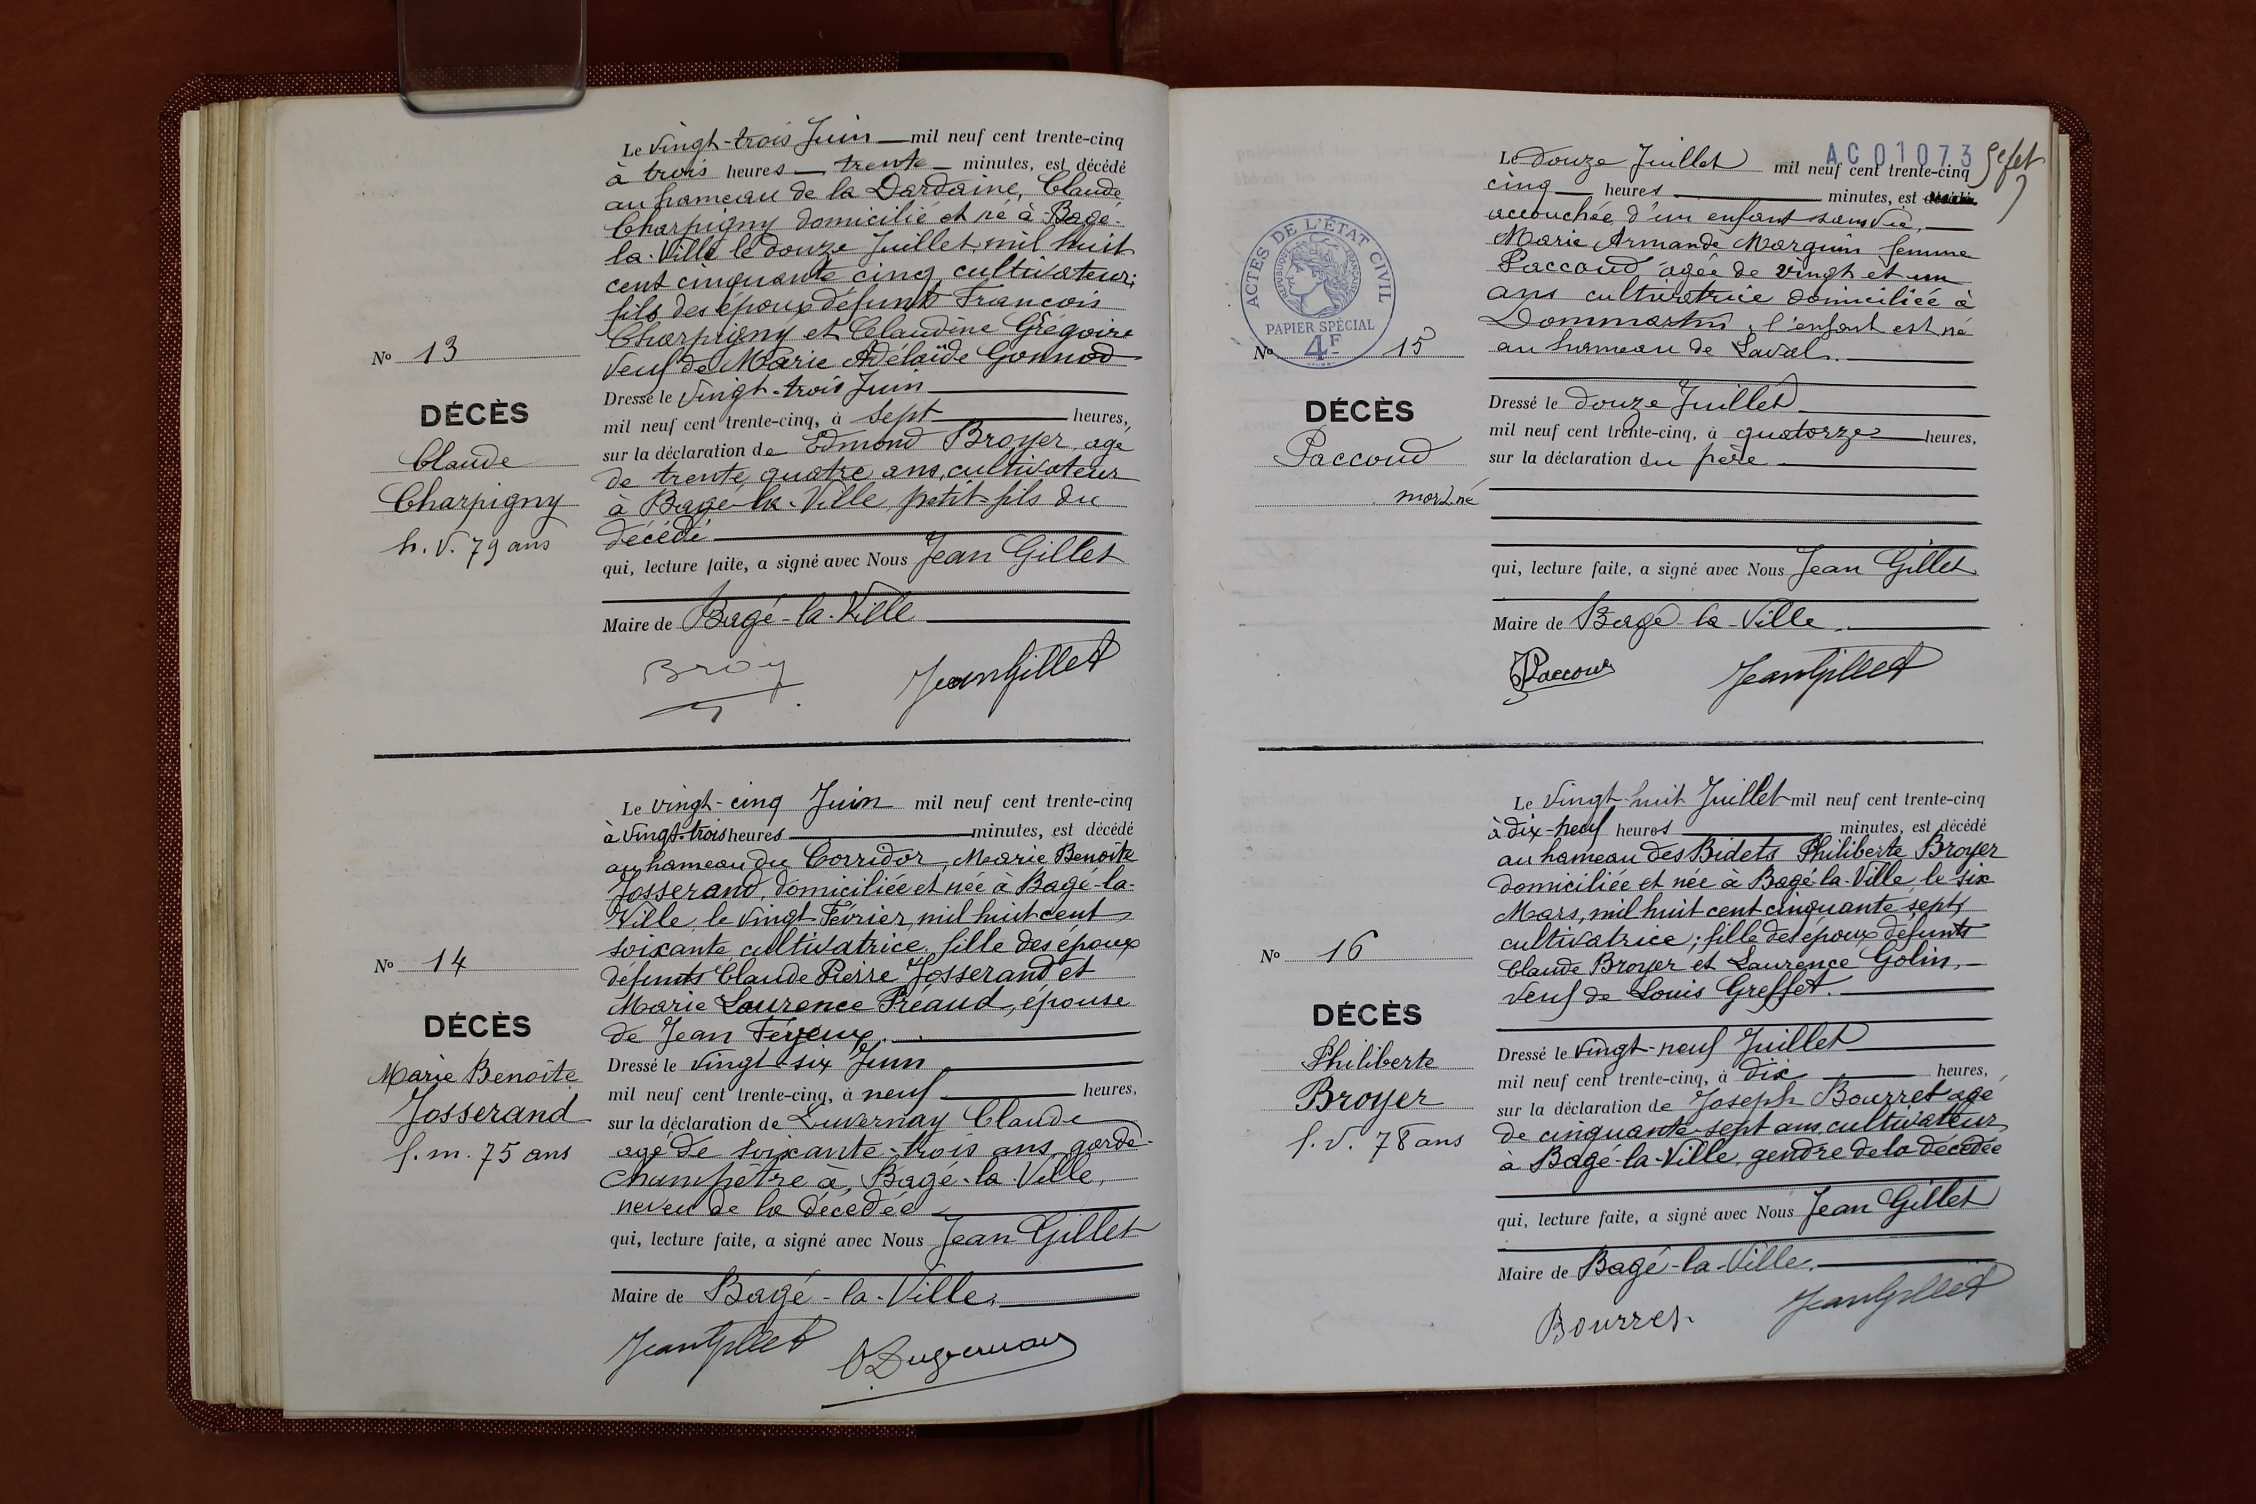 Le vingt-trois Juin mil neuf cent trente-cinq
à trois heures trente minutes, est décédé
au hameau de la Dardaine, Claude
Charpigny domicilié et né à Bagé-
la-Ville le douze Juillet mil huit
cent cinquante cinq, cultivateur;
fils des époux défunts François
Charpigny et Claudine Grégoire
veuf de Marie Adélaïde Gonnod
Dressé le vingt-trois Juin
mil neuf cent trente-cinq, à sept heures,
sur la déclaration de Edmond Broyer, agé
de trente quatre ans, cultivateur
à Bagé-la-Ville, petit-fils du
décédé
qui, lecture faite, a signé avec Nous Jean Gillet
Maire de Bagé-la-Ville
Broy
Jean Gillet
No 13
DÉCÈS
Claude
Charpigny
h. v. 79 ans
Le vingt-cinq Juin mil neuf cent trente-cinq
à vingt-trois heures minutes, est décédé
au hameau du Corridor, Marie Benoite
Josserand, domiciliée et née à Bagé-la-
Ville, le vingt Février, mil huit cent
soixante, cultivatrice, fille des époux
défunts Claude Pierre Josserand et
Marie Laurence Préaud, épouse
de Jean Feyeux.
Dressé le vingt-six Juin
mil neuf cent trente-cinq, à neuf heures,
sur la déclaration de Luvernay Claude
agé de soixante-trois ans, garde-
champêtre à Bagé-la-Ville,
neveu de la décédée
qui, lecture faite, a signé avec Nous Jean Gillet
Maire de Bagé-la-Ville.
Jean Gillet
No 14
DÉCÈS
Marie Benoîte
Josserand
f. m. 75 ans
AC01073
5e fet
Le douze Juillet mil neuf cent trente-cinq
cinq heures minutes, est
accouchée d'un enfant sans vie,
Marie Armande Marguin femme
Paccoud, agée de vingt et un
ans cultivatrice domiciliée à
Dommartin, l'enfant est né
au hameau de Laval.
Dressé le douze Juillet
mil neuf cent trente-cinq, à quatorze heures,
sur la déclaration du père
qui, lecture faite, a signé avec Nous Jean Gillet
Maire de Bagé-la-Ville.
Paccoud
Jean Gillet
ACTES DE L'ÉTAT CIVIL
RÉPUBLIQUE FRANÇAISE
PAPIER SPÉCIAL
4F
No 15
DÉCÈS
Paccoud
mort né
Le vingt-huit Juillet mil neuf cent trente-cinq
à dix-neuf heures minutes, est décédé
au hameau des Bidets Philiberte Broyer
domiciliée et née à Bagé-la-Ville, le six
Mars, mil huit cent cinquante sept,
cultivatrice; fille des époux défunts
Claude Broyer et Laurence Golin,
veuf de Louis Greffet.
Dressé le vingt-neuf Juillet
mil neuf cent trente-cinq, à dix heures,
sur la déclaration de Joseph Bourret agé
de cinquante-sept ans, cultivateur
à Bagé-la-Ville, gendre de la décédée
qui, lecture faite, a signé avec Nous Jean Gillet
Maire de Bagé-la-Ville.
Bourret
Jean Gillet
No 16
DÉCÈS
Philiberte
Broyer
f. v. 78 ans